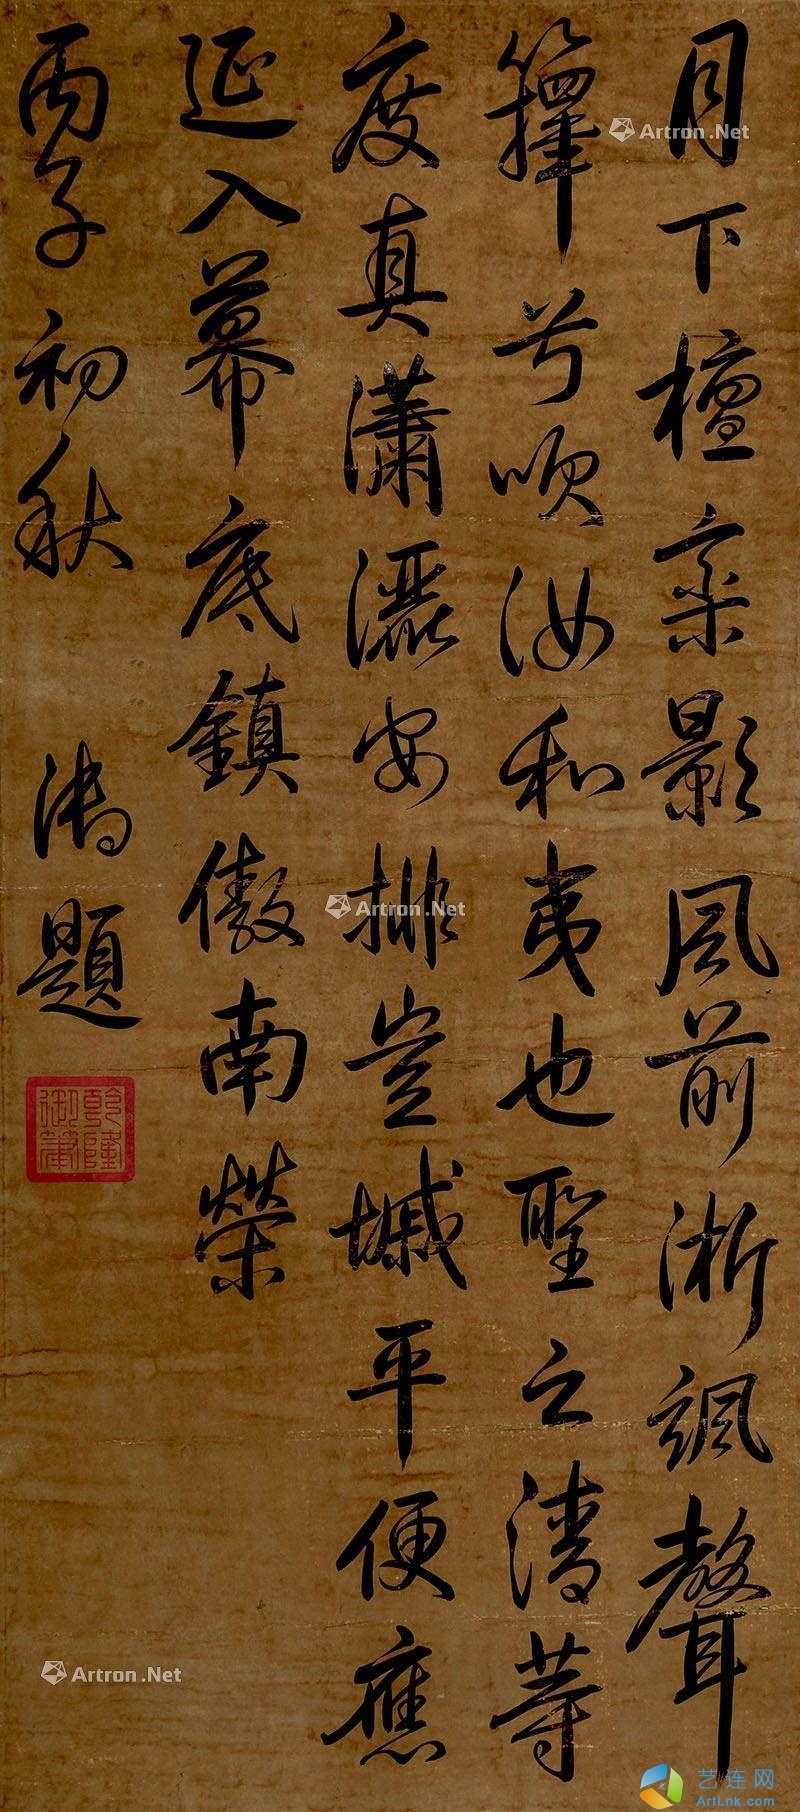 月下檀欒影風前淅颯聲
籜兮吹汝和夷也聖之清等
度真瀟灑安排豈墄平便應
延入幕底鎮傲南榮
丙子初秋 御題
乾隆御筆
Artron.Net
Artron.Net
Artron.Net
艺连网
ArtLnk.com